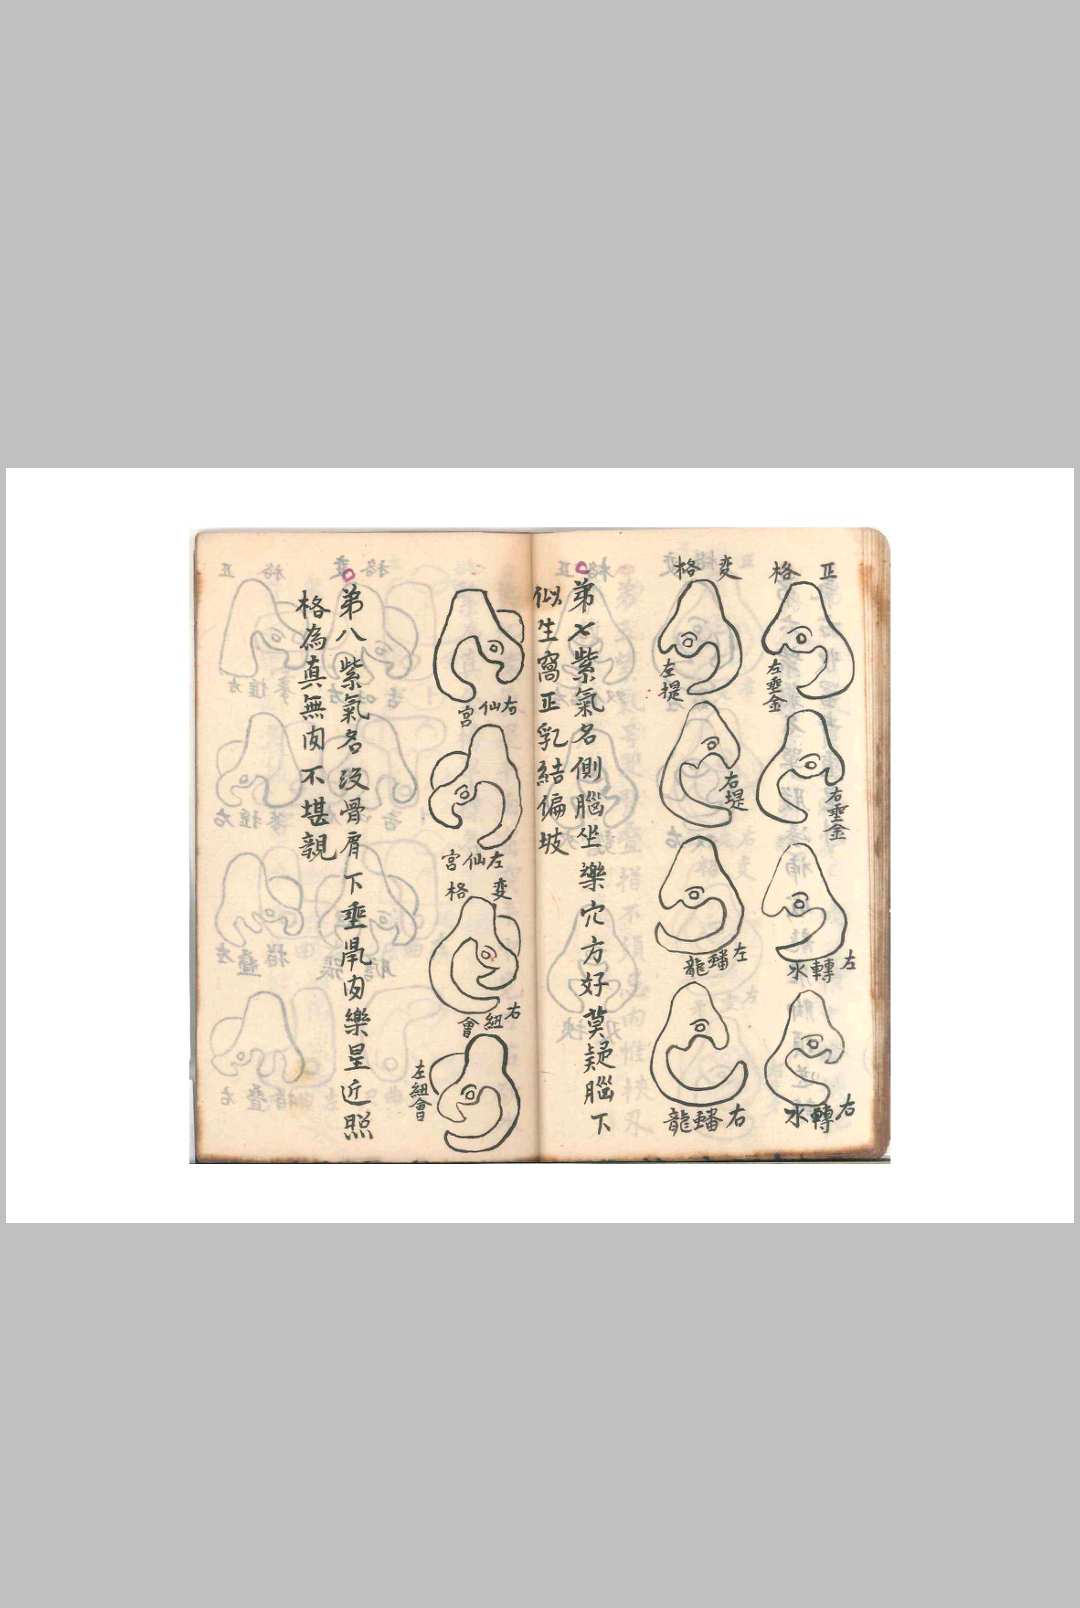 正格
左垂金
右垂金
左轉水
右轉水
変格
左提
右堤
左蟠龍
右蟠龍
弟七紫氣名側腦坐樂穴方好莫疑腦下
似生窩正乳結偏坡
右仙宮
左仙宮
変格
右紐會
左紐會
弟八紫氣名没骨肩下垂鼡肉樂星近照
格為真無肉不堪親